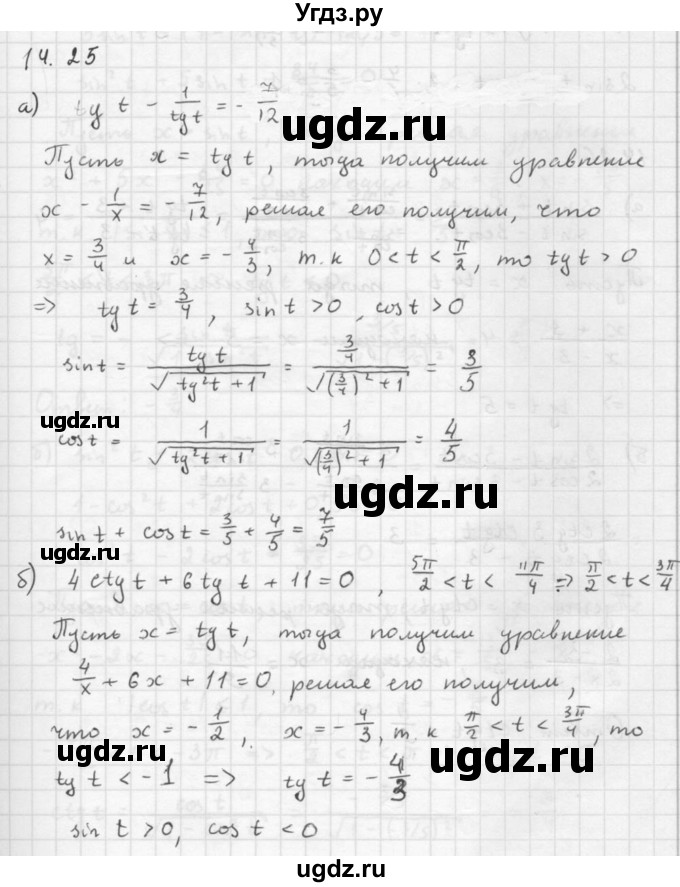 Угдз.ру
14.25
а) tg t - 1/tg t = - 7/12
ugdz.ru
Пусть x = tg t, тогда получим уравнение
x - 1/x = - 7/12, решая его получим, что
x = 3/4 и x = - 4/3, т.к 0 < t < π/2, то tg t > 0
=> tg t = 3/4, sin t > 0, cos t > 0
sin t = tg t / √(tg²t + 1) = (3/4) / √((3/4)² + 1) = 3/5
ugdz.ru
cos t = 1 / √(tg²t + 1) = 1 / √((3/4)² + 1) = 4/5
ugdz.ru
sin t + cos t = 3/5 + 4/5 = 7/5
б) 4 ctg t + 6 tg t + 11 = 0, 5π/2 < t < 11π/4 => π/2 < t < 3π/4
Пусть x = tg t, тогда получим уравнение
4/x + 6x + 11 = 0, решая его получим,
что x = - 1/2, x = - 4/3, т.к π/2 < t < 3π/4, то
ugdz.ru
tg t < -1 => tg t = - 4/3
ugdz.ru
sin t > 0, cos t < 0
ugdz.ru